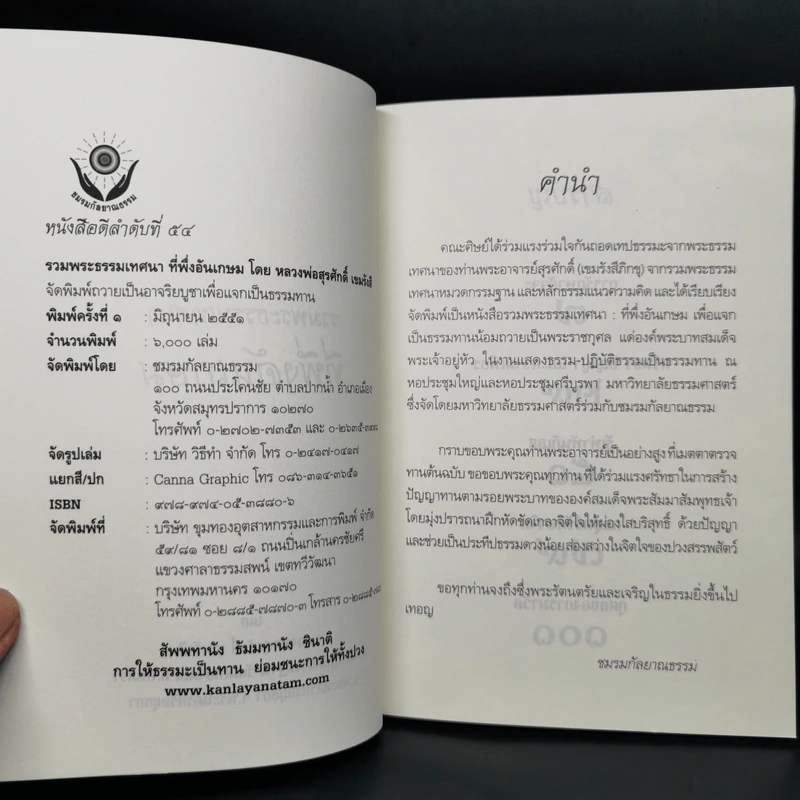 ชมรมกัลยาณธรรม
หนังสือดีลำดับที่ ๕๔
รวมพระธรรมเทศนา ที่พึ่งอันเกษม โดย หลวงพ่อสุรศักดิ์ เขมรังสี
จัดพิมพ์ถวายเป็นอาจริยบูชาเพื่อแจกเป็นธรรมทาน
พิมพ์ครั้งที่ ๑ : มิถุนายน ๒๕๕๑
จำนวนพิมพ์ : ๖,๐๐๐ เล่ม
จัดพิมพ์โดย : ชมรมกัลยาณธรรม
๑๐๐ ถนนประโคนชัย ตำบลปากน้ำ อำเภอเมือง
จังหวัดสมุทรปราการ ๑๐๒๗๐
โทรศัพท์ ๐-๒๗๐๒-๗๓๕๓ และ
จัดรูปเล่ม : บริษัท วิธิทำ จำกัด โทร ๐-๒๔๑๗-๐๔๑๗
แยกสี/ปก : Canna Graphic โทร ๐๘๖-๓๑๔-๓๖๕๑
ISBN : ๙๗๘-๙๗๔-๐๕-๓๘๘๐-๖
จัดพิมพ์ที่ : บริษัท ขุมทองอุตสาหกรรมและการพิมพ์ จำกัด
๕๙/๘๑ ซอย ๘/๑ ถนนปิ่นเกล้านครชัยศรี
แขวงศาลาธรรมสพน์ เขตทวีวัฒนา
กรุงเทพมหานคร ๑๐๑๗๐
โทรศัพท์ ๐-๒๘๘๕-๗๘๗๐-๓ โทรสาร
สัพพทานัง ธัมมทานัง ชินาติ
การให้ธรรมะเป็นทาน ย่อมชนะการให้ทั้งปวง
www.kanlayanatam.com
คำนำ
คณะศิษย์ได้ร่วมแรงร่วมใจกันถอดเทปธรรมะจากพระธรรม
เทศนาของท่านพระอาจารย์สุรศักดิ์ (เขมรังสีภิกขุ) จากรวมพระธรรม
เทศนาหมวดกรรมฐาน และหลักธรรมแนวความคิด และได้เรียบเรียง
จัดพิมพ์เป็นหนังสือรวมพระธรรมเทศนา : ที่พึ่งอันเกษม เพื่อแจก
เป็นธรรมทานน้อมถวายเป็นพระราชกุศล แด่องค์พระบาทสมเด็จ
พระเจ้าอยู่หัว ในงานแสดงธรรม-ปฏิบัติธรรมเป็นธรรมทาน ณ
หอประชุมใหญ่และหอประชุมศรีบูรพา มหาวิทยาลัยธรรมศาสตร์
ซึ่งจัดโดยมหาวิทยาลัยธรรมศาสตร์ร่วมกับชมรมกัลยาณธรรม
กราบขอบพระคุณท่านพระอาจารย์เป็นอย่างสูง ที่เมตตาตรวจ
ทานต้นฉบับ ขอขอบพระคุณทุกท่าน ที่ได้ร่วมแรงศรัทธาในการสร้าง
ปัญญาทานตามรอยพระบาทขององค์สมเด็จพระสัมมาสัมพุทธเจ้า
โดยมุ่งปรารถนาฝึกหัดขัดเกลาจิตใจให้ผ่องใสบริสุทธิ์ ด้วยปัญญา
และช่วยเป็นประทีปธรรมดวงน้อยส่องสว่างในจิตใจของปวงสรรพสัตว์
ขอทุกท่านจงถึงซึ่งพระรัตนตรัยและเจริญในธรรมยิ่งขึ้นไป
เทอญ
ชมรมกัลยาณธรรม